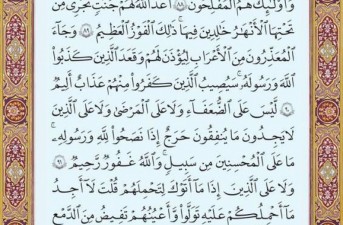 وَأُولَٰئِكَ هُمُ الْمُفْلِحُونَ ٨٨ أَعَدَّ اللَّهُ لَهُمْ جَنَّاتٍ تَجْرِي مِن
تَحْتِهَا الْأَنْهَارُ خَالِدِينَ فِيهَا ذَٰلِكَ الْفَوْزُ الْعَظِيمُ ٨٩ وَجَاءَ
الْمُعَذِّرُونَ مِنَ الْأَعْرَابِ لِيُؤْذَنَ لَهُمْ وَقَعَدَ الَّذِينَ كَذَبُوا
اللَّهَ وَرَسُولَهُ سَيُصِيبُ الَّذِينَ كَفَرُوا مِنْهُمْ عَذَابٌ أَلِيمٌ
٩٠ لَّيْسَ عَلَى الضُّعَفَاءِ وَلَا عَلَى الْمَرْضَىٰ وَلَا عَلَى الَّذِينَ
لَا يَجِدُونَ مَا يُنفِقُونَ حَرَجٌ إِذَا نَصَحُوا لِلَّهِ وَرَسُولِهِ
مَا عَلَى الْمُحْسِنِينَ مِن سَبِيلٍ وَاللَّهُ غَفُورٌ رَّحِيمٌ ٩١
وَلَا عَلَى الَّذِينَ إِذَا مَا أَتَوْكَ لِتَحْمِلَهُمْ قُلْتَ لَا أَجِدُ
مَا أَحْمِلُكُمْ عَلَيْهِ تَوَلَّوا وَّأَعْيُنُهُمْ تَفِيضُ مِنَ الدَّمْعِ